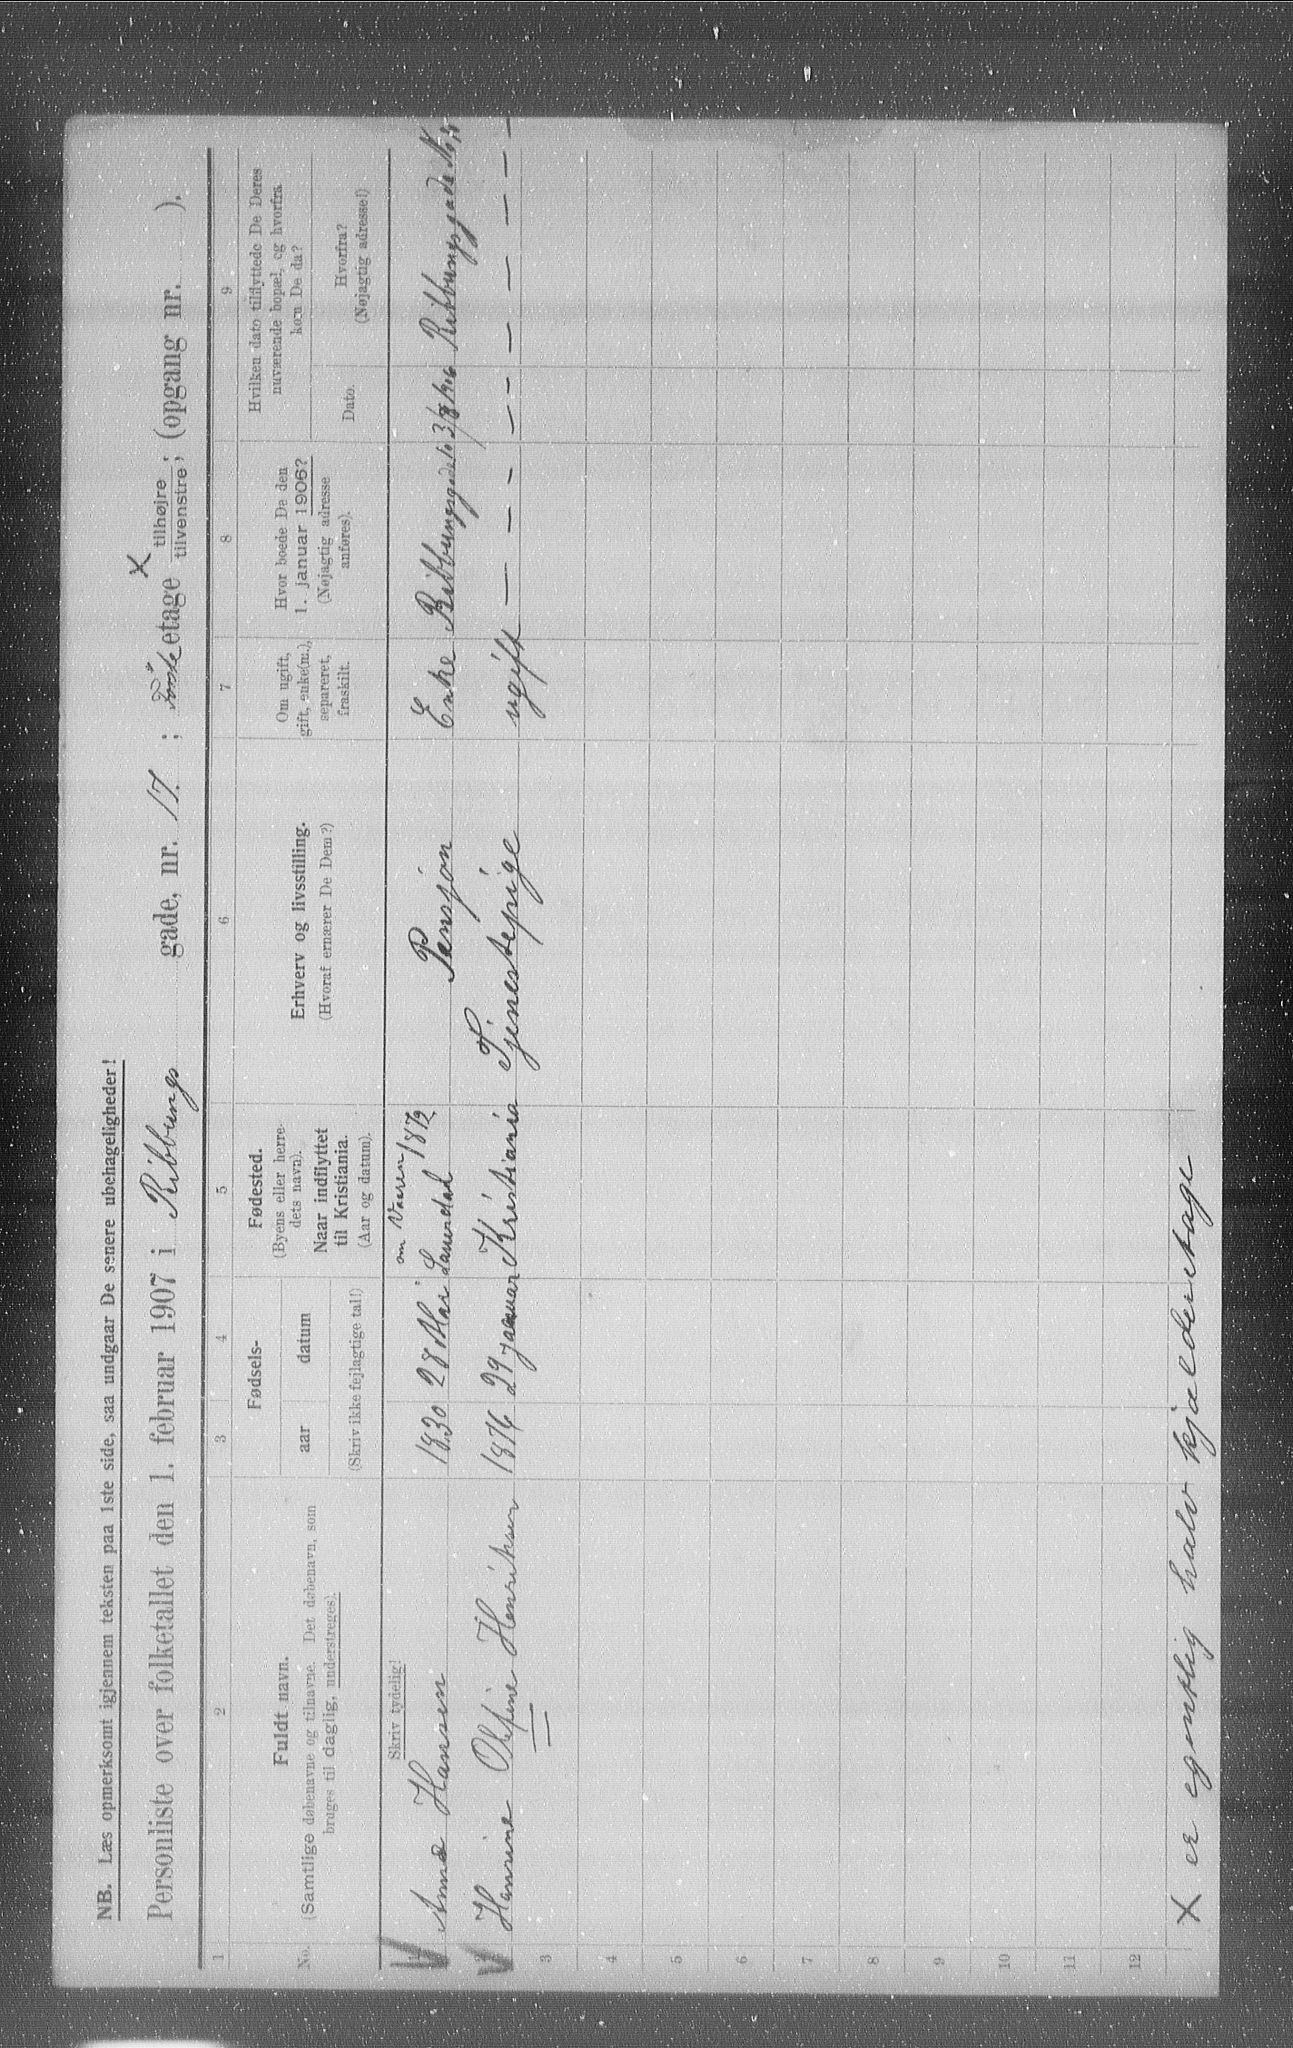 NB. Læs opmerksomt igjennem teksten paa 1ste side, saa undgaar De senere ubehageligheder!
Personliste over folketallet den 1. februar 1907 i Ribbungs gade, nr. 17. ; Første etage X tilhøjre tilvenstre ; (opgang nr. ).
1 2 3 4 5 6 7 8 9
No.
Fuldt navn.
(Samtlige døbenavne og tilnavne. Det døbenavn, som
bruges til daglig, understreges).
Fødsels-
aar datum
(Skriv ikke fejlagtige tal!)
Fødested.
(Byens eller herre-
dets navn).
Naar indflyttet
til Kristiania.
(Aar og datum).
Erhverv og livsstilling.
(Hvoraf ernærer De Dem?)
Om ugift,
gift, enke(m.),
separeret,
fraskilt.
Hvor boede De den
1. januar 1906?
(Nøjagtig adresse
anføres).
Hvilken dato tilflyttede De Deres
nuværende bopæl, og hvorfra
kom De da?
Dato.
Hvorfra?
(Nøjagtig adresse!)
Skriv tydelig!
om Vaaren 1872
1 Anna Hansen 1830 28 Mai Laurdal Pensjon Enke Ribbungsgade 3/8 1906 Ribbungsgade No
2 Hansine Olefine Henriksen 1876 29 januar Kristiania Tjenestepige ugift — — — — — — — — —
3
4
5
6
7
8
9
10
11
12
X er egentlig halv kjælderetage